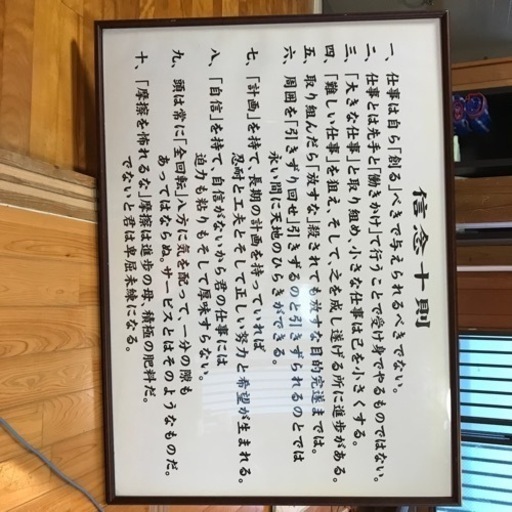 信念十則
一、仕事は自ら「創る」べきで与えられるべきでない。
二、仕事とは先手と「働きかけ」て行うことで受け身でやるものではない。
三、「大きな仕事」と取り組め、小さな仕事は己を小さくする。
四、「難しい仕事」を狙え、そして、之を成し遂げる所に進歩がある。
五、取り組んだら「放すな」殺されても放すな目的完遂までは。
六、周囲を「引きずり回せ」引きずるのと引きずられるのとでは
永い間に天地のひらきができる。
七、「計画」を持て、長期の計画を持っていれば
忍耐と工夫とそして正しい努力と希望が生まれる。
八、「自信」を持て、自信がないから君の仕事には
迫力も粘りもそして厚味すらない。
九、頭は常に「全回転」八方に気を配って、一分の隙も
あってはならぬ。サービスとはそのようなものだ。
十、「摩擦を怖れるな」摩擦は進歩の母、積極の肥料だ。
でないと君は卑屈未練になる。